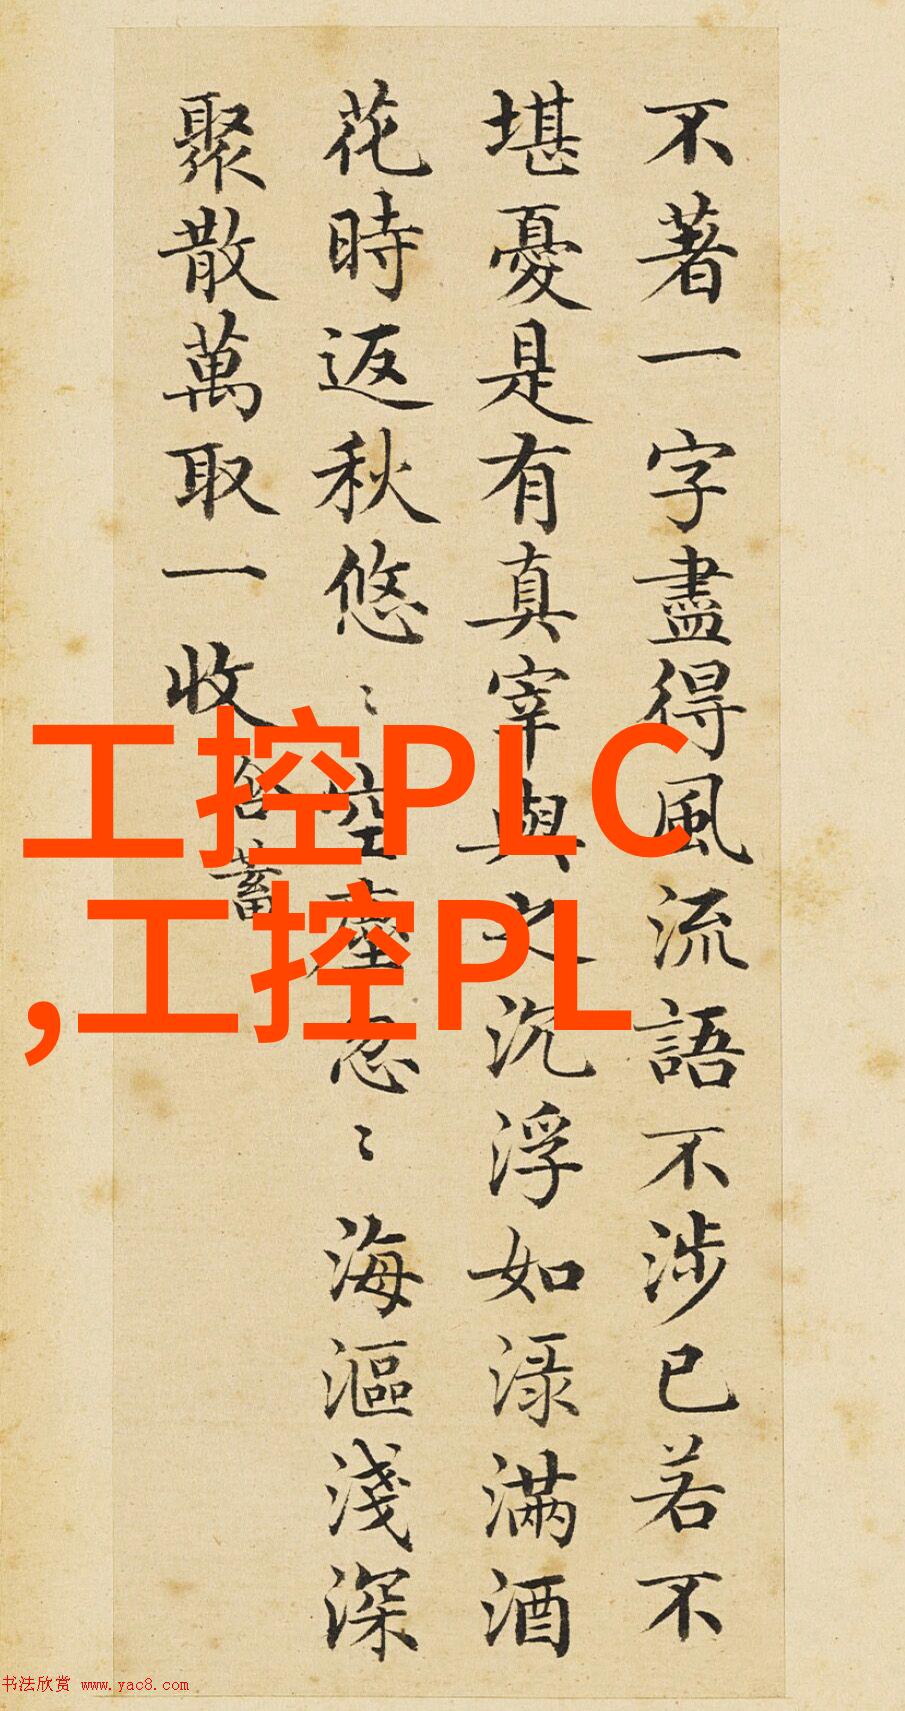 不著一字盡得風流語不涉已若不
堪憂是有真宰與之沉浮如渌滿酒
花時返秋悠〻空塵忽〻海漚淺深
聚散萬取一收
含蓄
工控PLC
,工控PL
书法欣赏 www.yac8.com